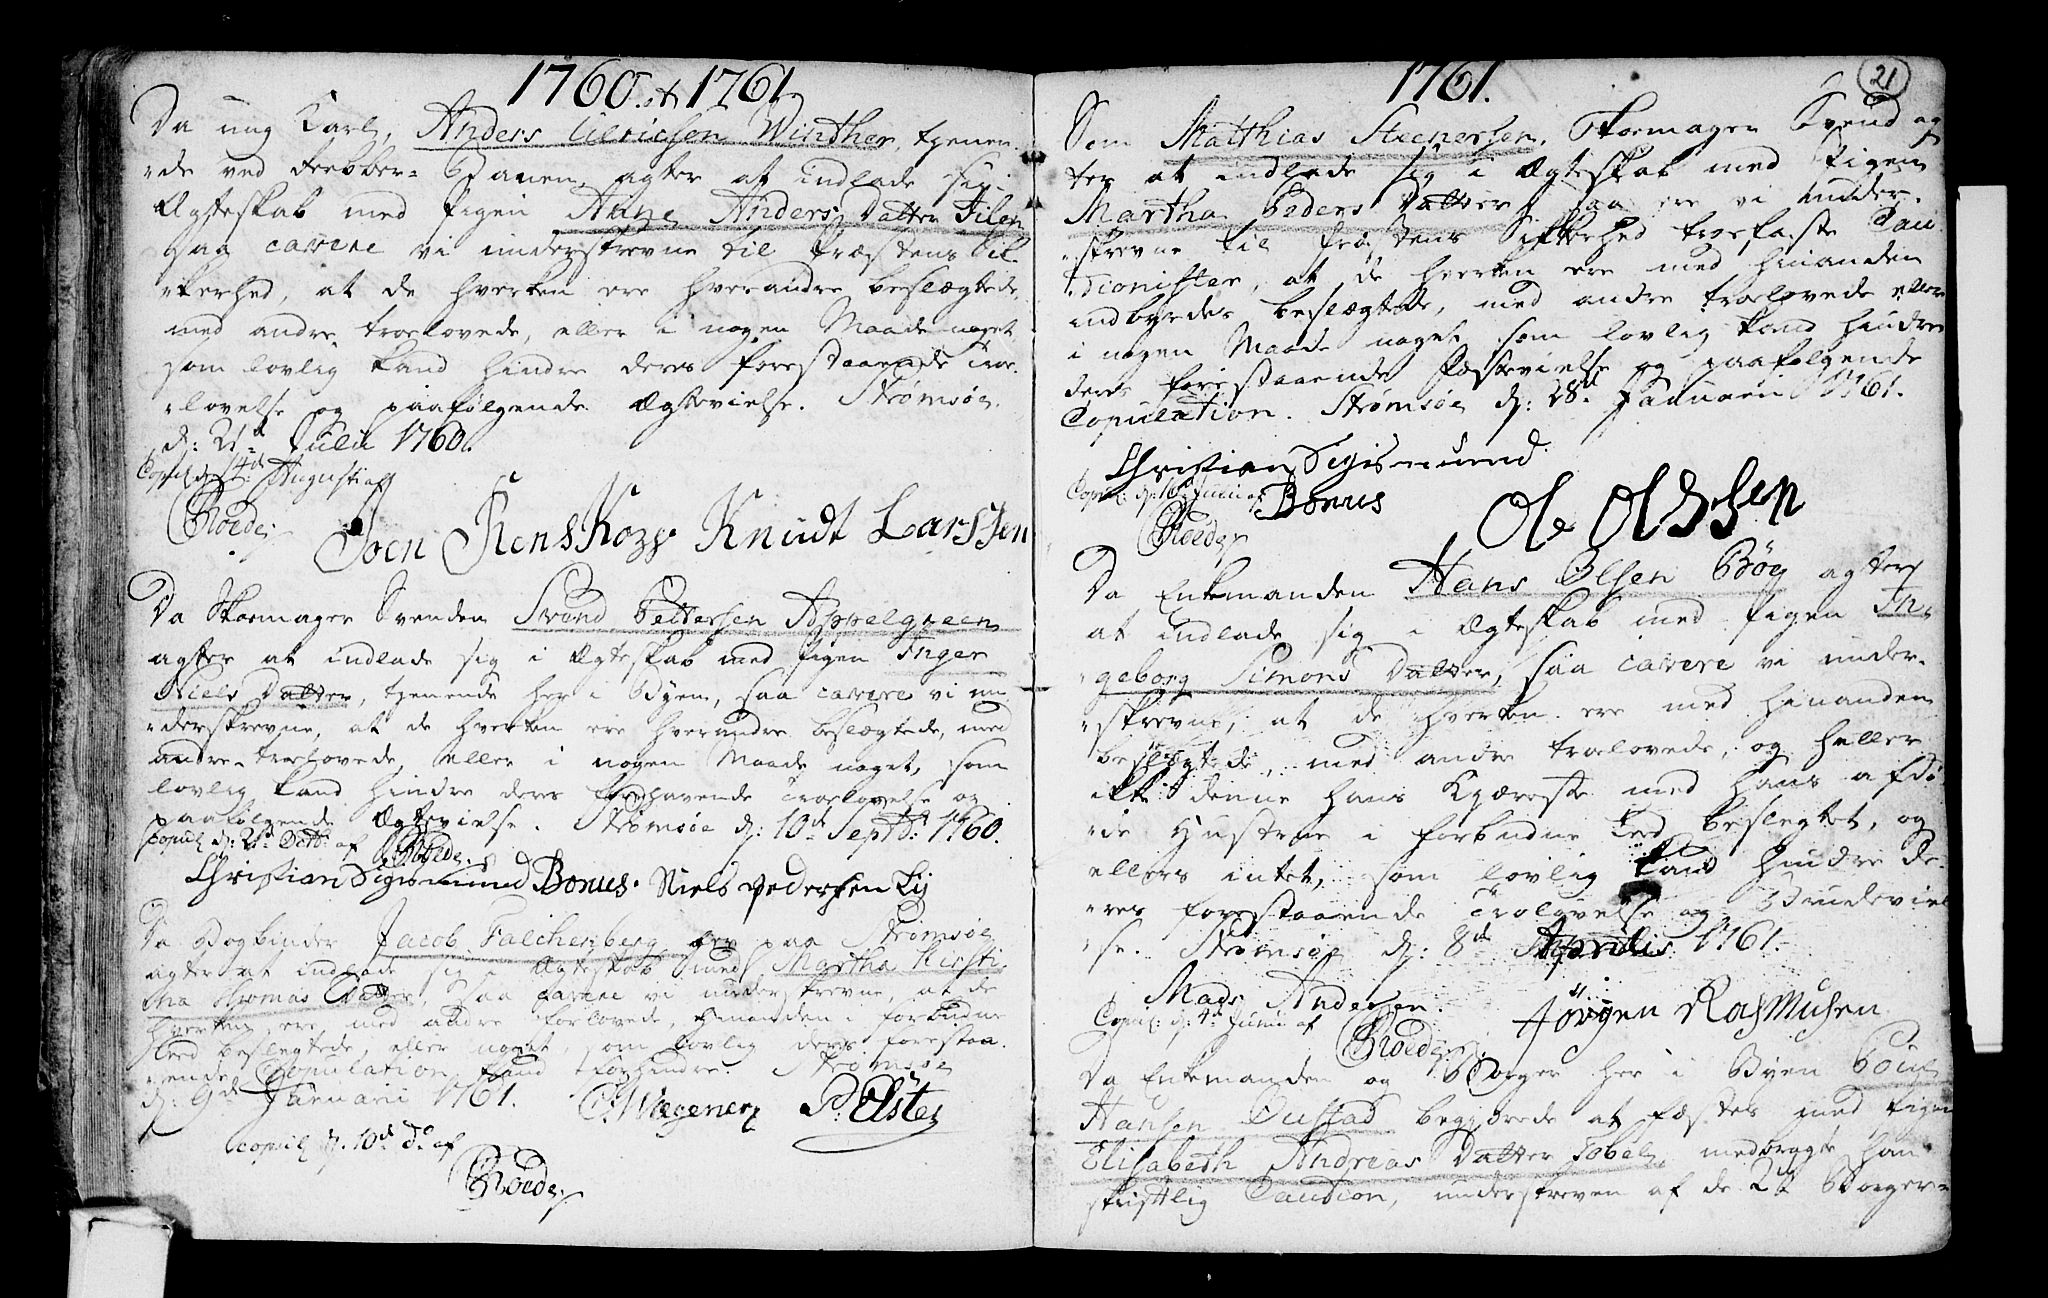 1760. et 1761.
Da ung Karl, Anders Ulrichsen Winther, tienen-
de ved Feeboer- agter at indlade sig i
Ægteskab med Pigen Anne Anders Datter Filen
saa cavere vi underskrevne til Præstens Sik-
kerhed, at de hverken ere hverandre beslægtede,
med andre troelovede, eller i nogen Maade noget
som lovlig kand hindre deres forestaaende Troe-
lovelse og paafølgende Ægtevielse. Strømsøe
d: 21de Julii 1760.
Copul. d. 14de Augusti af
CRoede.
Joen Jens Kopp. Knudt Larssen
Da Skoemager Svenden Svend Pettersen Appelgreen
agter at indlade sig i Ægteskab med Pigen Inger
Niels Datter, tjenende her i Byen, saa cavere vi un-
derskrevne, at de hverken ere hverandre beslægtede, med
andre troelovede, eller i nogen Maade noget, som
lovlig kand hindre deres forehavende Troelovelse og
paafølgende Ægtevielse. Strømsøe d: 10de Septbr: 1760.
Copul. d: 21de Octb: af CRoede.
Christian Sigismund Bonus. Niels Pedersen Lij
Da Bogbinder Jacob Falchenberg her paa Strømsøe
agter at indlade sig i Ægteskab med Martha Kirsti-
na Thomas Datter, saa cavere vi underskrevne, at de
hverken ere med andre forlovede, hinanden i forbudne
Leed beslegtede, eller noget, som lovlig deres forestaa-
ende Copulation kand forhindre. Strømsøe
d: 9de Januarii 1761. C. Wegener P. Elster
copul. d. 10de Do af
CRoede.
1761.
21
Som Matthias Steenersen, Skoemager Svend ag-
ter at indlade sig i Ægteskab med Pigen
Martha Peders Datter, saa ere vi under-
skrevne til Præstens Sikkerhed troefaste Cau-
tionister, at de hverken ere med hinanden
indbyrdes beslægtede, med andre troelovede eller
i nogen Maade noget som lovlig kand hindre
deres forestaaende Fæstevielse og paafølgende
Copulation. Strømsøe d: 28de Januarii 1761.
Christian Sigismund
Copul: d: 16de Junii af Bonus Ole Olssen
CRoede
Da Enkemanden Hans Olsen Bøe agter
at indlade sig i Ægteskab med Pigen In-
geborg Simons Datter, saa cavere vi under-
skrevne, at de hverken ere med hinanden
beslægtede, med andre troelovede, og heller
ikke denne hans Kjæreste med hans afdø-
de Hustrue i forbudne Leed beslegtet, og
ellers intet, som lovlig kand hindre de-
res forestaaende Trolovelse og Brudeviel-
se. Strømsøe d: 8de Aprilis 1761.
Mads Andersen. Jörgen Rasmusen
Copul: d: 4de Junii af
CRoede
Da Enkemanden og Borger her i Byen Poul
Hansen Oustad begjærede at fæstes med Pigen
Elisabeth Andreas Datter Fobel, medbragte han
skriftlig Caution, underskreven af de 2de Borger-